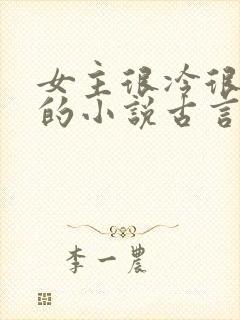 女主很冷很
的小说古言
李一农